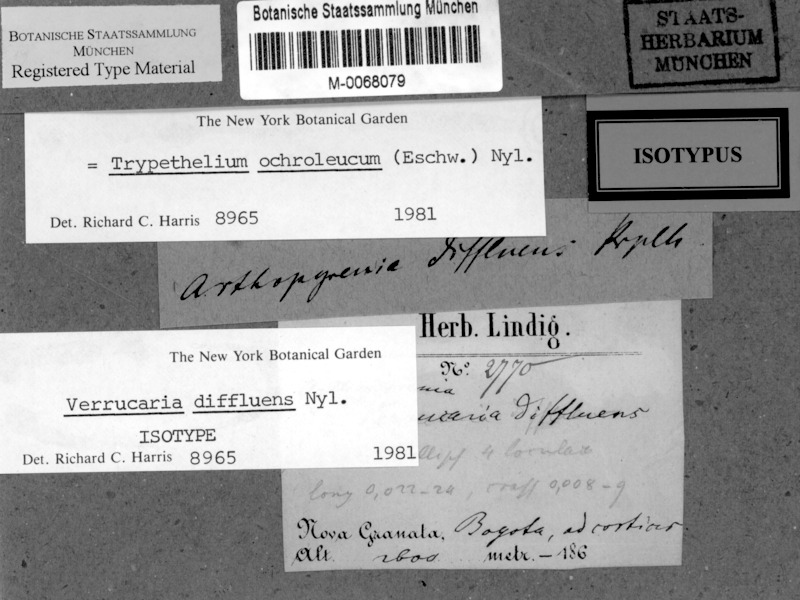 BOTANISCHE STAATSSAMMLUNG
MÜNCHEN
Registered Type Material
Botanische Staatssammlung München
M-0068079
STAATS-
HERBARIUM
MÜNCHEN
The New York Botanical Garden
= Trypethelium ochroleucum (Eschw.) Nyl.
Det. Richard C. Harris 8965 1981
ISOTYPUS
Arthopyrenia diffluens Krplh
Herb. Lindig.
No. 2770
diffluens
4 locular
long 0,022-24, crass 0,008-9
Nova Granata, Bogota, ad cortices
Alt. 2600 metr. - 186
The New York Botanical Garden
Verrucaria diffluens Nyl.
ISOTYPE
Det. Richard C. Harris 8965 1981